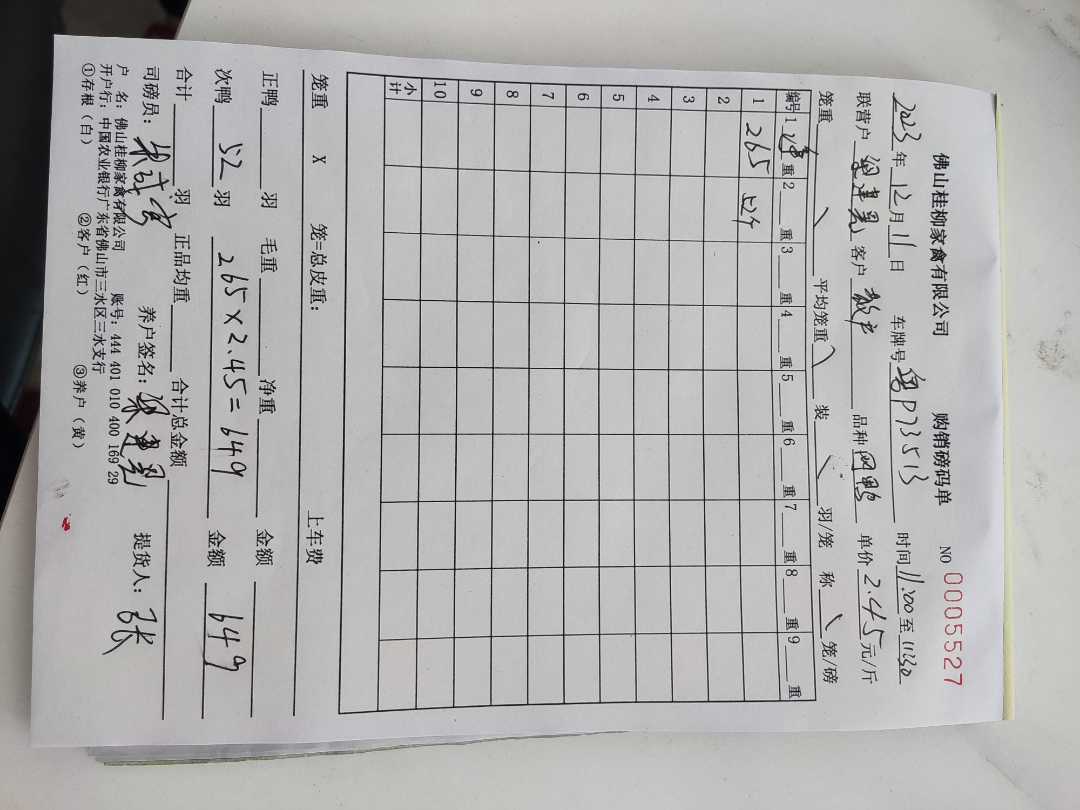 佛山桂柳家禽有限公司 购销磅码单 NO 0005527
2023年12月11日 车牌号粤P73513 时间11:00至11:30
联营户 客户散户 品种 鸭 单价2.45元/斤
笼重 平均笼重 装 羽/笼 称 笼/磅
编号 1净重 2 重 3 重 4 重 5 重 6 重 7 重 8 重 9 重
1 265 52只
2
3
4
5
6
7
8
9
10
小计
笼重 X 笼=总皮重: 上车费
正鸭 羽 毛重 净重 金额
次鸭 52 羽 265×2.45=649 金额 649
合计 羽 正品均重 合计总金额
司磅员: 养户签名:梁建 提货人:张
户 名:佛山桂柳家禽有限公司 账号:444 401 010 400 169 29
开户行:中国农业银行广东省佛山市三水区三水支行
①存根(白) ②客户(红) ③养户(黄)